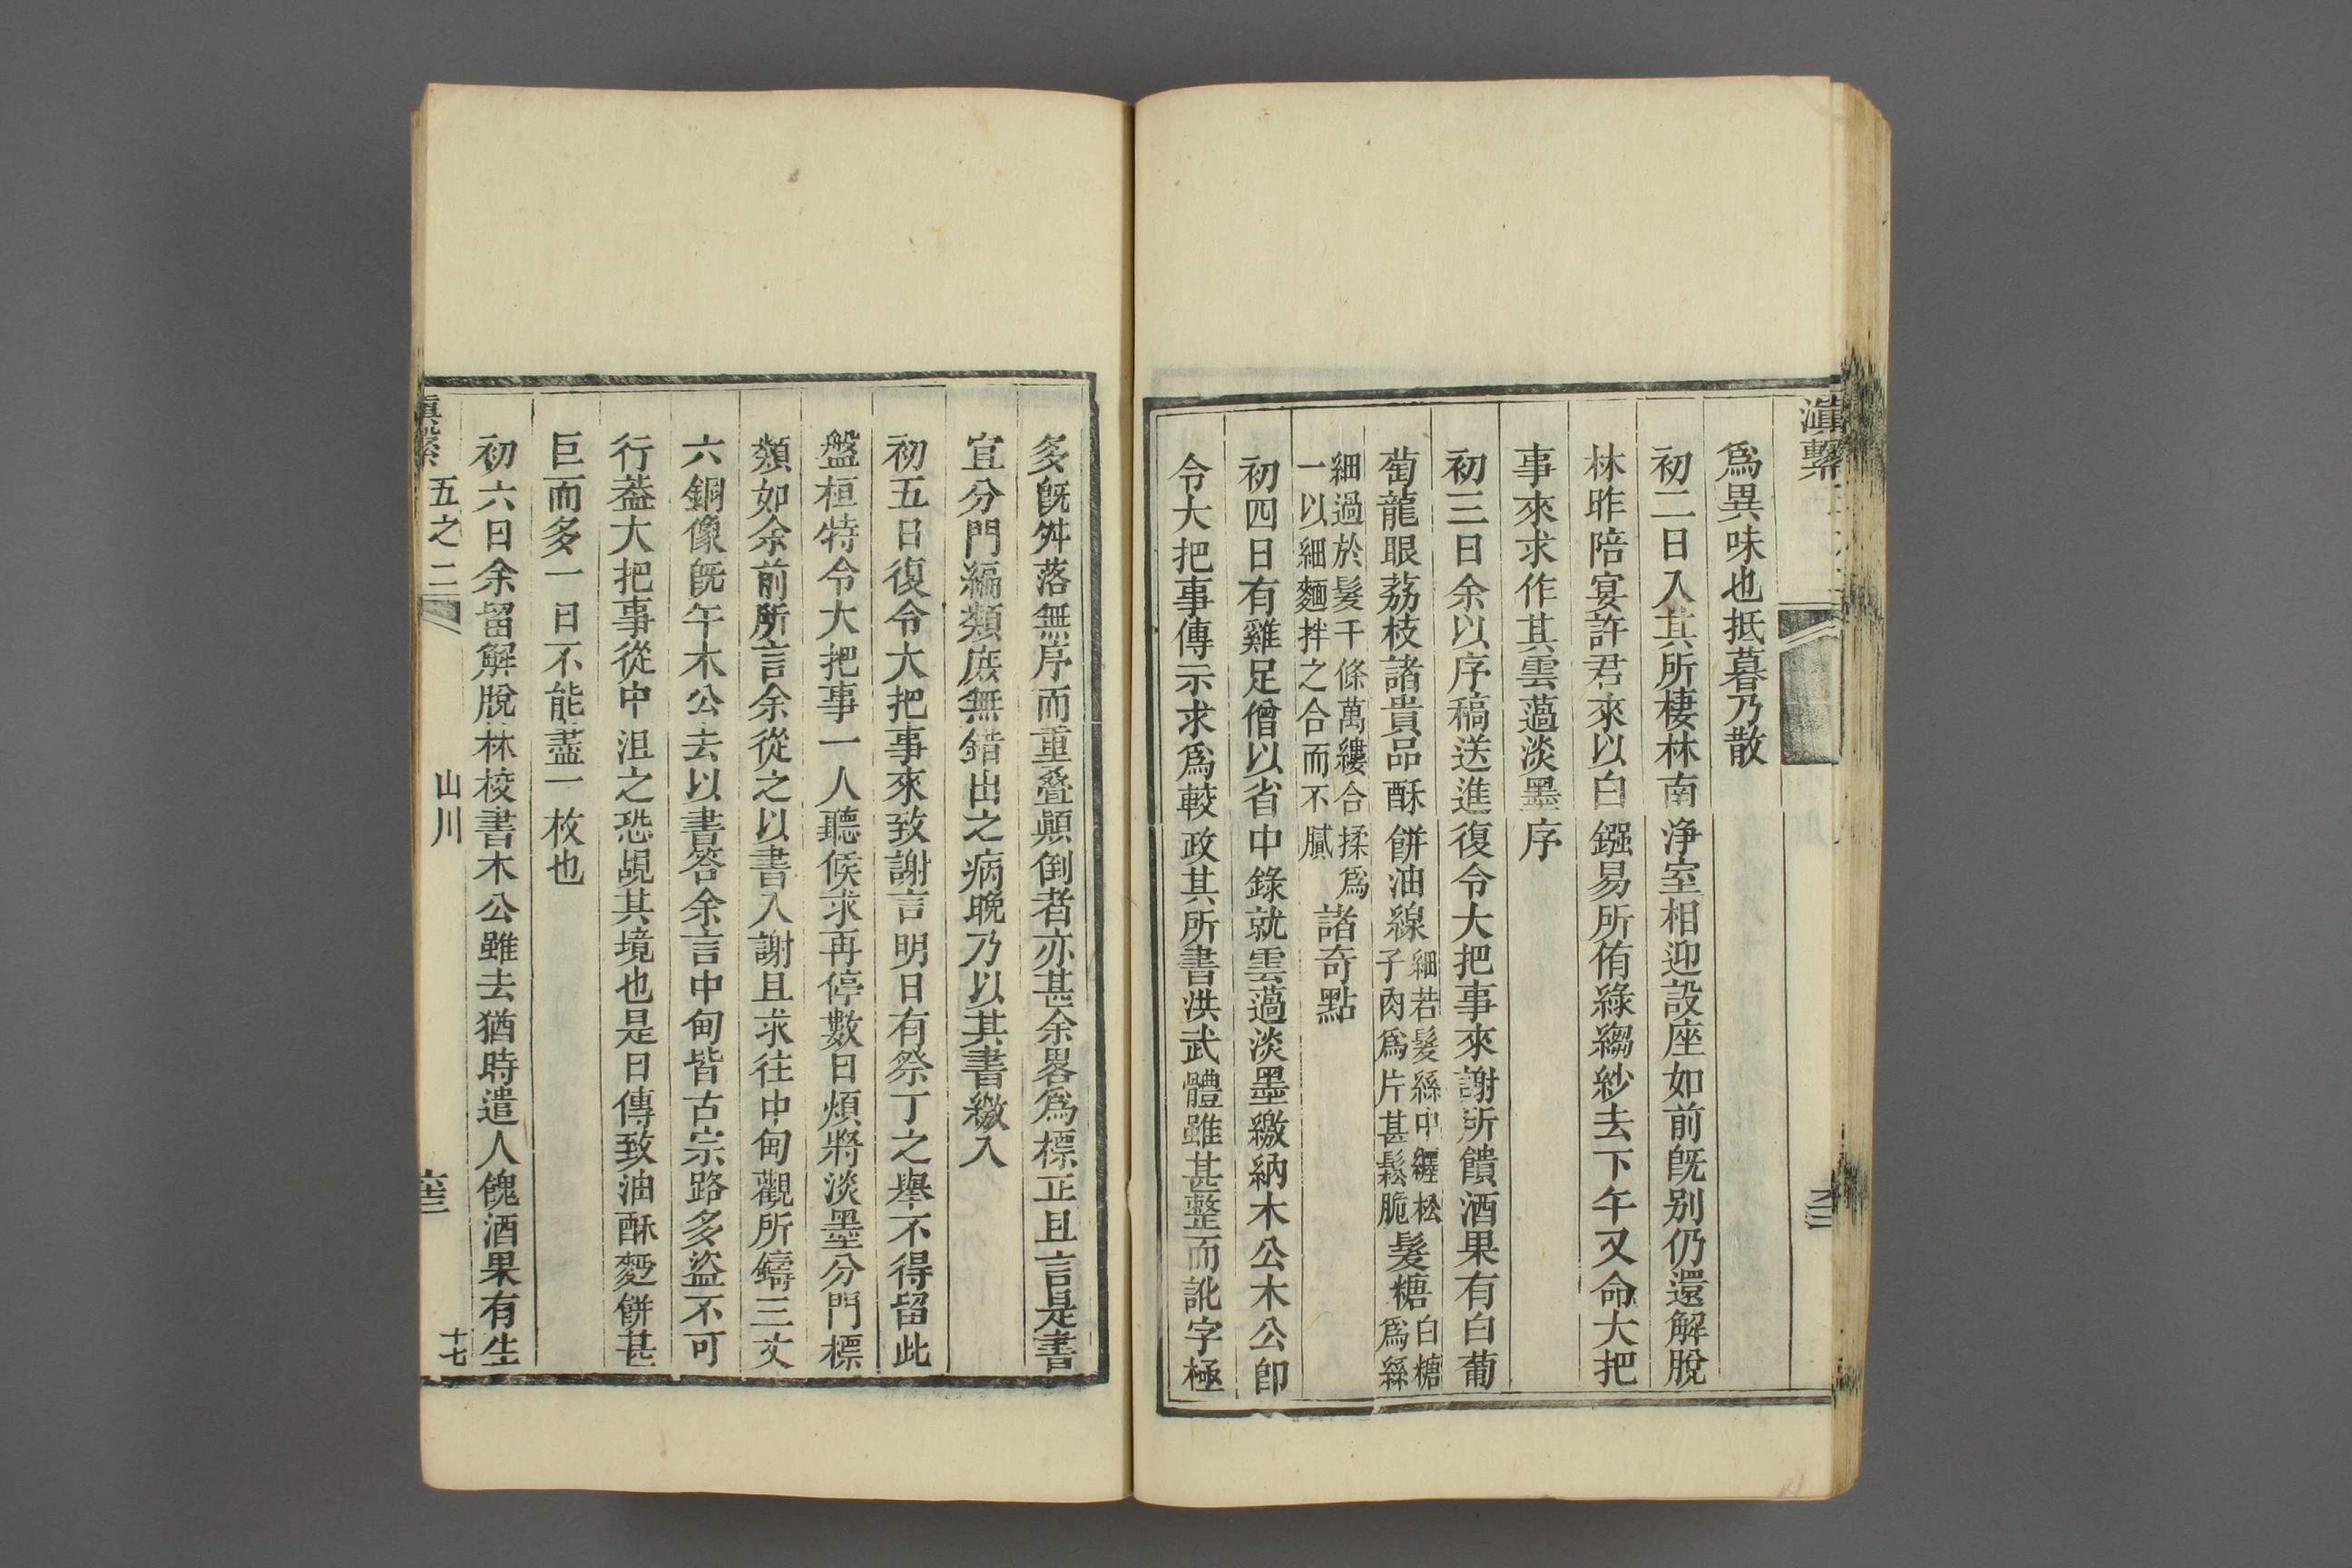 滇繫
爲異味也抵暮乃散
初二日入其所棲林南淨室相迎設座如前旣别仍還解脫
林昨陪宴許君來以白鏹易所侑綠縐紗去下午又命大把
事來求作其雲薖淡墨序
初三日余以序稿送進復令大把事來謝所饋酒果有白葡
萄龍眼荔枝諸貴品酥餅油線細若髮絲中纒松子肉爲片甚鬆脆髮糖白糖爲絲
細過於髮千條萬縷合揉爲一以細麵拌之合而不膩諸奇點
初四日有雞足僧以省中錄就雲薖淡墨繳納木公木公卽
令大把事傳示求爲較政其所書洪武體雖甚整而訛字極
多旣舛落無序而重疊顚倒者亦甚余畧爲標正且言是書
宜分門編類庶無錯出之病晚乃以其書繳入
初五日復令大把事來致謝言明日有祭丁之舉不得留此
盤桓特令大把事一人聽候求再停數日煩將淡墨分門標
類如余前所言余從之以書入謝且求往中甸觀所鑄三丈
六銅像旣午木公去以書答余言中甸皆古宗路多盜不可
行蓋大把事從中沮之恐覘其境也是日傳致油酥麪餅甚
巨而多一日不能盡一枚也
初六日余留解脫林校書木公雖去猶時遣人餽酒果有生
滇繫 五之二 山川 十七